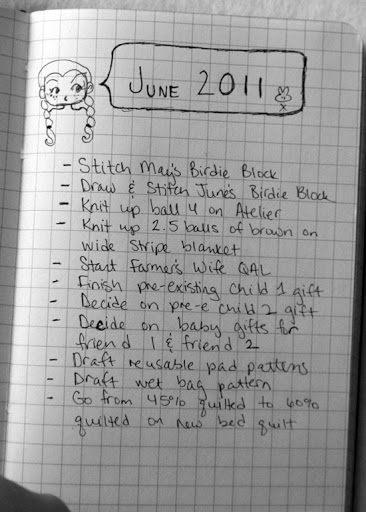 June 2011
- Stitch May's Birdie Block
- Draw & Stitch June's Birdie Block
- Knit up ball 4 on Atelier
- Knit up 2.5 balls of brown on
wide Stripe blanket
- Start Farmer's Wife QAL
- Finish pre-existing child 1 gift
- Decide on pre-e child 2 gift
- Decide on baby gifts for
friend 1 & friend 2
- Draft reusable pad pattens
- Draft wet bag pattern
- Go from 45% quilted to 60%
quilted on new bed quilt